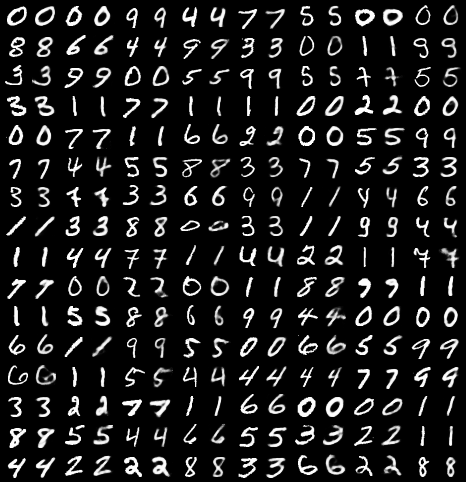 0 0 0 0 9 9 4 4 7 7 5 5 0 0 0 0
8 8 6 6 4 4 9 9 3 3 0 0 1 1 9 9
3 3 9 9 0 0 5 5 9 9 5 5 7 7 5 5
3 3 1 1 7 7 1 1 1 1 0 0 2 2 0 0
0 0 7 7 1 1 6 6 2 2 0 0 5 5 9 9
7 7 4 4 5 5 8 8 3 3 7 7 5 5 3 3
3 3 7 7 3 3 6 6 9 9 1 1 4 4 6 6
1 1 3 3 8 8 0 0 3 3 1 1 9 9 4 4
1 1 4 4 7 7 1 1 4 4 2 2 1 1 7 7
7 7 0 0 2 2 0 0 1 1 8 8 9 9 1 1
1 1 5 5 8 8 6 6 9 9 4 4 0 0 0 0
6 6 1 1 9 9 5 5 0 0 6 6 5 5 9 9
6 6 1 1 5 5 4 4 4 4 4 4 7 7 9 9
3 3 2 2 7 7 1 1 6 6 0 0 0 0 1 1
8 8 5 5 4 4 6 6 5 5 3 3 2 2 1 1
4 4 2 2 2 2 8 8 3 3 6 6 2 2 8 8